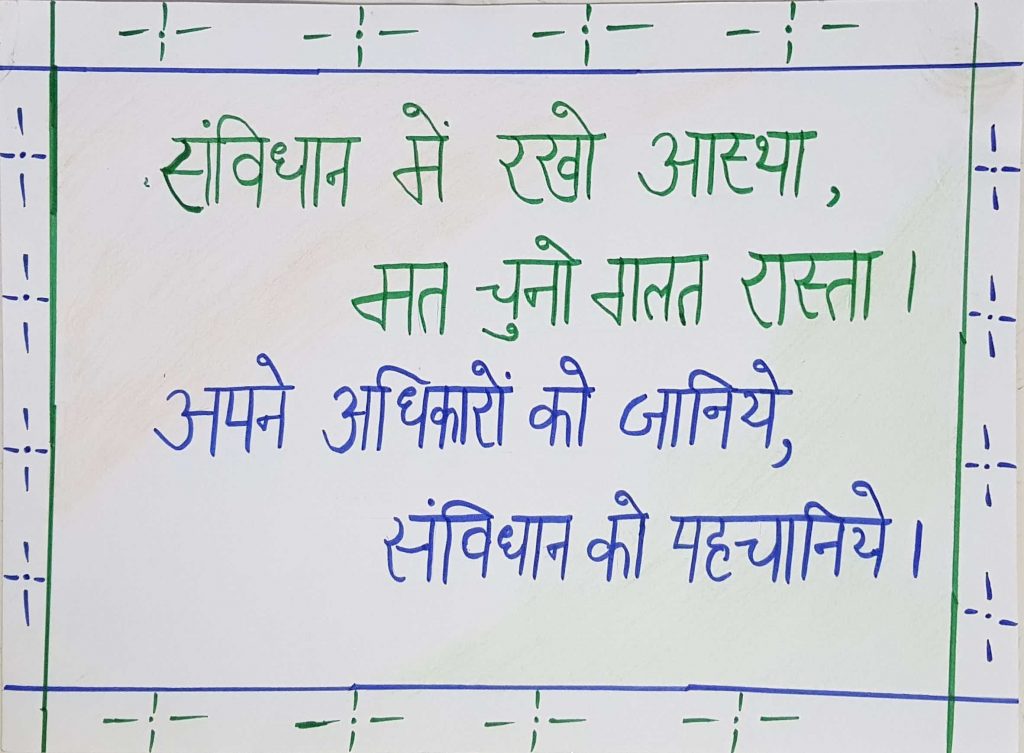 संविधान में रखो आस्था,
मत चुनो गलत रास्ता।
अपने अधिकारों को जानिये,
संविधान को पहचानिये।